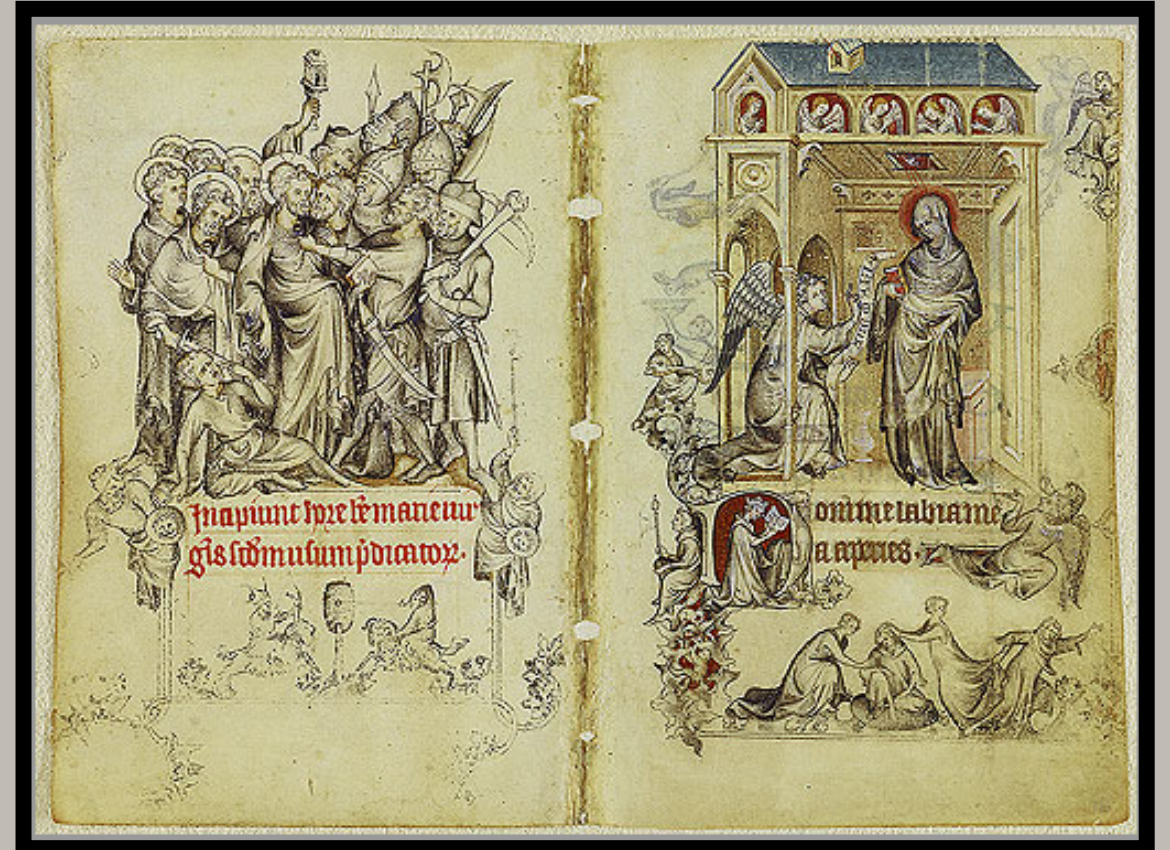 Incipiunt hore bẽ marie uir
gĩs scd̃m usum p̃dicatoꝝ.
Domine labia me
a aperies.